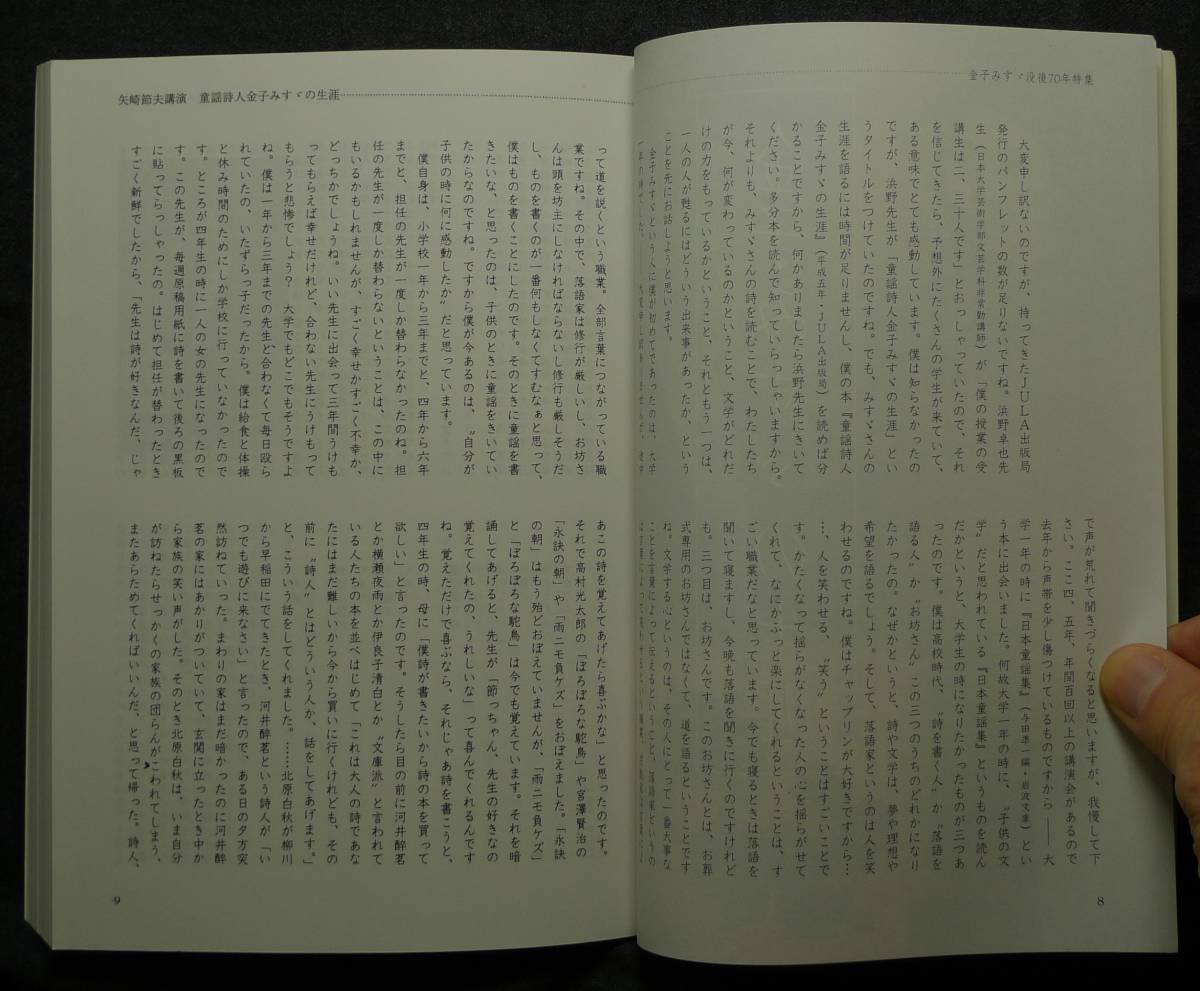 金子みすゞ没後70年特集
大変申し訳ないのですが、持ってきたＪＵＬＡ出版局
発行のパンフレットの数が足りないですね。浜野卓也先
生（日本大学芸術学部文芸学科非常勤講師）が「僕の授業の受
講生は二、三十人です」とおっしゃっていたので、それ
を信じてきたら、予想外にたくさんの学生が来ていて、
ある意味でとても感動しています。僕は知らなかったの
ですが、浜野先生が「童謡詩人金子みすゞの生涯」とい
うタイトルをつけていたのですね。でも、みすゞさんの
生涯を語るには時間が足りませんし、僕の本『童謡詩人
金子みすゞの生涯』（平成五年・ＪＵＬＡ出版局）を読めば分
かることですから、何かありましたら浜野先生にきいて
ください。多分本を読んで知っていらっしゃいますから。
それよりも、みすゞさんの詩を読むことで、わたしたち
が今、何が変わっているのかということ、文学がどれだ
けの力をもっているかということ、それともう一つは、
一人の人が甦るにはどういう出来事があったか、という
ことを先にお話しようと思います。
金子みすゞという人に僕が初めてであったのは、大学
で声が荒れて聞きづらくなると思いますが、我慢して下
さい。ここ四、五年、年間百回以上の講演会があるので
去年から声帯を少し傷つけているものですから――大
学一年の時に『日本童謡集』（与田凖一編・岩波文庫）とい
う本に出会いました。何故大学一年の時に、〝子供の文
学〟だと思われている『日本童謡集』というものを読ん
だかというと、大学生の時になりたかったものが三つあ
ったのです。僕は高校時代、〝詩を書く人〟か〝落語を
語る人〟か〝お坊さん〟この三つのうちのどれかになり
たかった。なぜかというと、詩や文学は、夢や理想や
希望を語るでしょう。そして、落語家というのは人を笑
わせるのですね。僕はチャップリンが大好きですから…
…、人を笑わせる、〝笑う〟ということはすごいことで
す。かたくなって揺らがなくなった人の心を揺らがせて
くれて、なにかふっと楽にしてくれるということは、す
ごい職業だなと思っています。今でも寝るときは落語を
聞いて寝ますし、今晩も落語を聞きに行くのですけれど
も。三つ目は、お坊さんです。このお坊さんとは、お葬
式専用のお坊さんではなくて、道を語るということです
ね。文学する心というのは、その人にとって一番大事な
ことを言葉によって伝えるということ、落語家というの
8
矢崎節夫講演　童謡詩人金子みすゞの生涯
って道を説くという職業。全部言葉につながっている職
業ですね。その中で、落語家は修行が厳しいし、お坊さ
んは頭を坊主にしなければならないし修行も厳しそうだ
し、ものを書くのが一番何もしなくてすむなぁと思って、
僕はものを書くことにしたのです。そのときに童謡を書
きたいな、と思ったのは、子供のときに童謡をきいてい
たからなのです。ですから僕が今あるのは、〝自分が
子供の時に何に感動したか〟だと思っています。
僕自身は、小学校一年から三年までと、四年から六年
までと、担任の先生が一度しか替わらなかったのね。担
任の先生が一度しか替わらないということは、この中に
もいるかもしれませんが、すごく幸せかすごく不幸か、
どっちかでしょうね。いい先生に出会って三年間うけも
ってもらえば幸せだけれど、合わない先生にうけもって
もらうと悲惨でしょう？　大学でもどこでもそうですよ
ね。僕は一年から三年までの先生と合わなくて毎日殴ら
れていたの、いたずらっ子だったから。僕は給食と体操
と休み時間のためにしか学校に行っていなかったので
す。ところが四年生の時に一人の女の先生になったので
す。この先生が、毎週原稿用紙に詩を書いて後ろの黒板
に貼ってらっしゃったの。はじめて担任が替わったとき
すごく新鮮でしたから、「先生は詩が好きなんだ、じゃ
あこの詩を覚えてあげたら喜ぶかな」と思ったのです。
それで高村光太郎の「ぼろぼろな駝鳥」や宮澤賢治の
「永訣の朝」や「雨ニモ負ケズ」をおぼえました。「永訣
の朝」はもう殆どおぼえていませんが、「雨ニモ負ケズ」
と「ぼろぼろな駝鳥」は今でも覚えています。それを暗
誦してあげると、先生が「節っちゃん、先生の好きなの
覚えてくれたの、うれしいな」って喜んでくれるんです
ね。覚えただけで喜ぶなら、それじゃあ詩を書こうと、
四年生の時、母に「僕詩が書きたいから詩の本を買って
欲しい」と言ったのです。そうしたら目の前に河井酔茗
とか横瀬夜雨とか伊良子清白とか〝文庫派〟と言われて
いる人たちの本を並べはじめて「これは大人の詩であな
たにはまだ難しいから今から買いに行くけれども、その
前に〝詩人〟とはどういう人か、話をしてあげます。」
と、こういう話をしてくれました。……北原白秋が柳川
から早稲田にでてきたとき、河井酔茗という詩人が「い
つでも遊びに来なさい」と言ったので、ある日の夕方突
然訪ねていった。まわりの家はまだ暗かったのに河井酔
茗の家にはあかりがついていて、玄関に立ったとき中か
ら家族の笑い声がした。そのとき北原白秋は、いま自分
が訪ねたらせっかくの家族の団らんがこわれてしまう、
またあらためてくればいいんだ、と思って帰った。詩人、
9